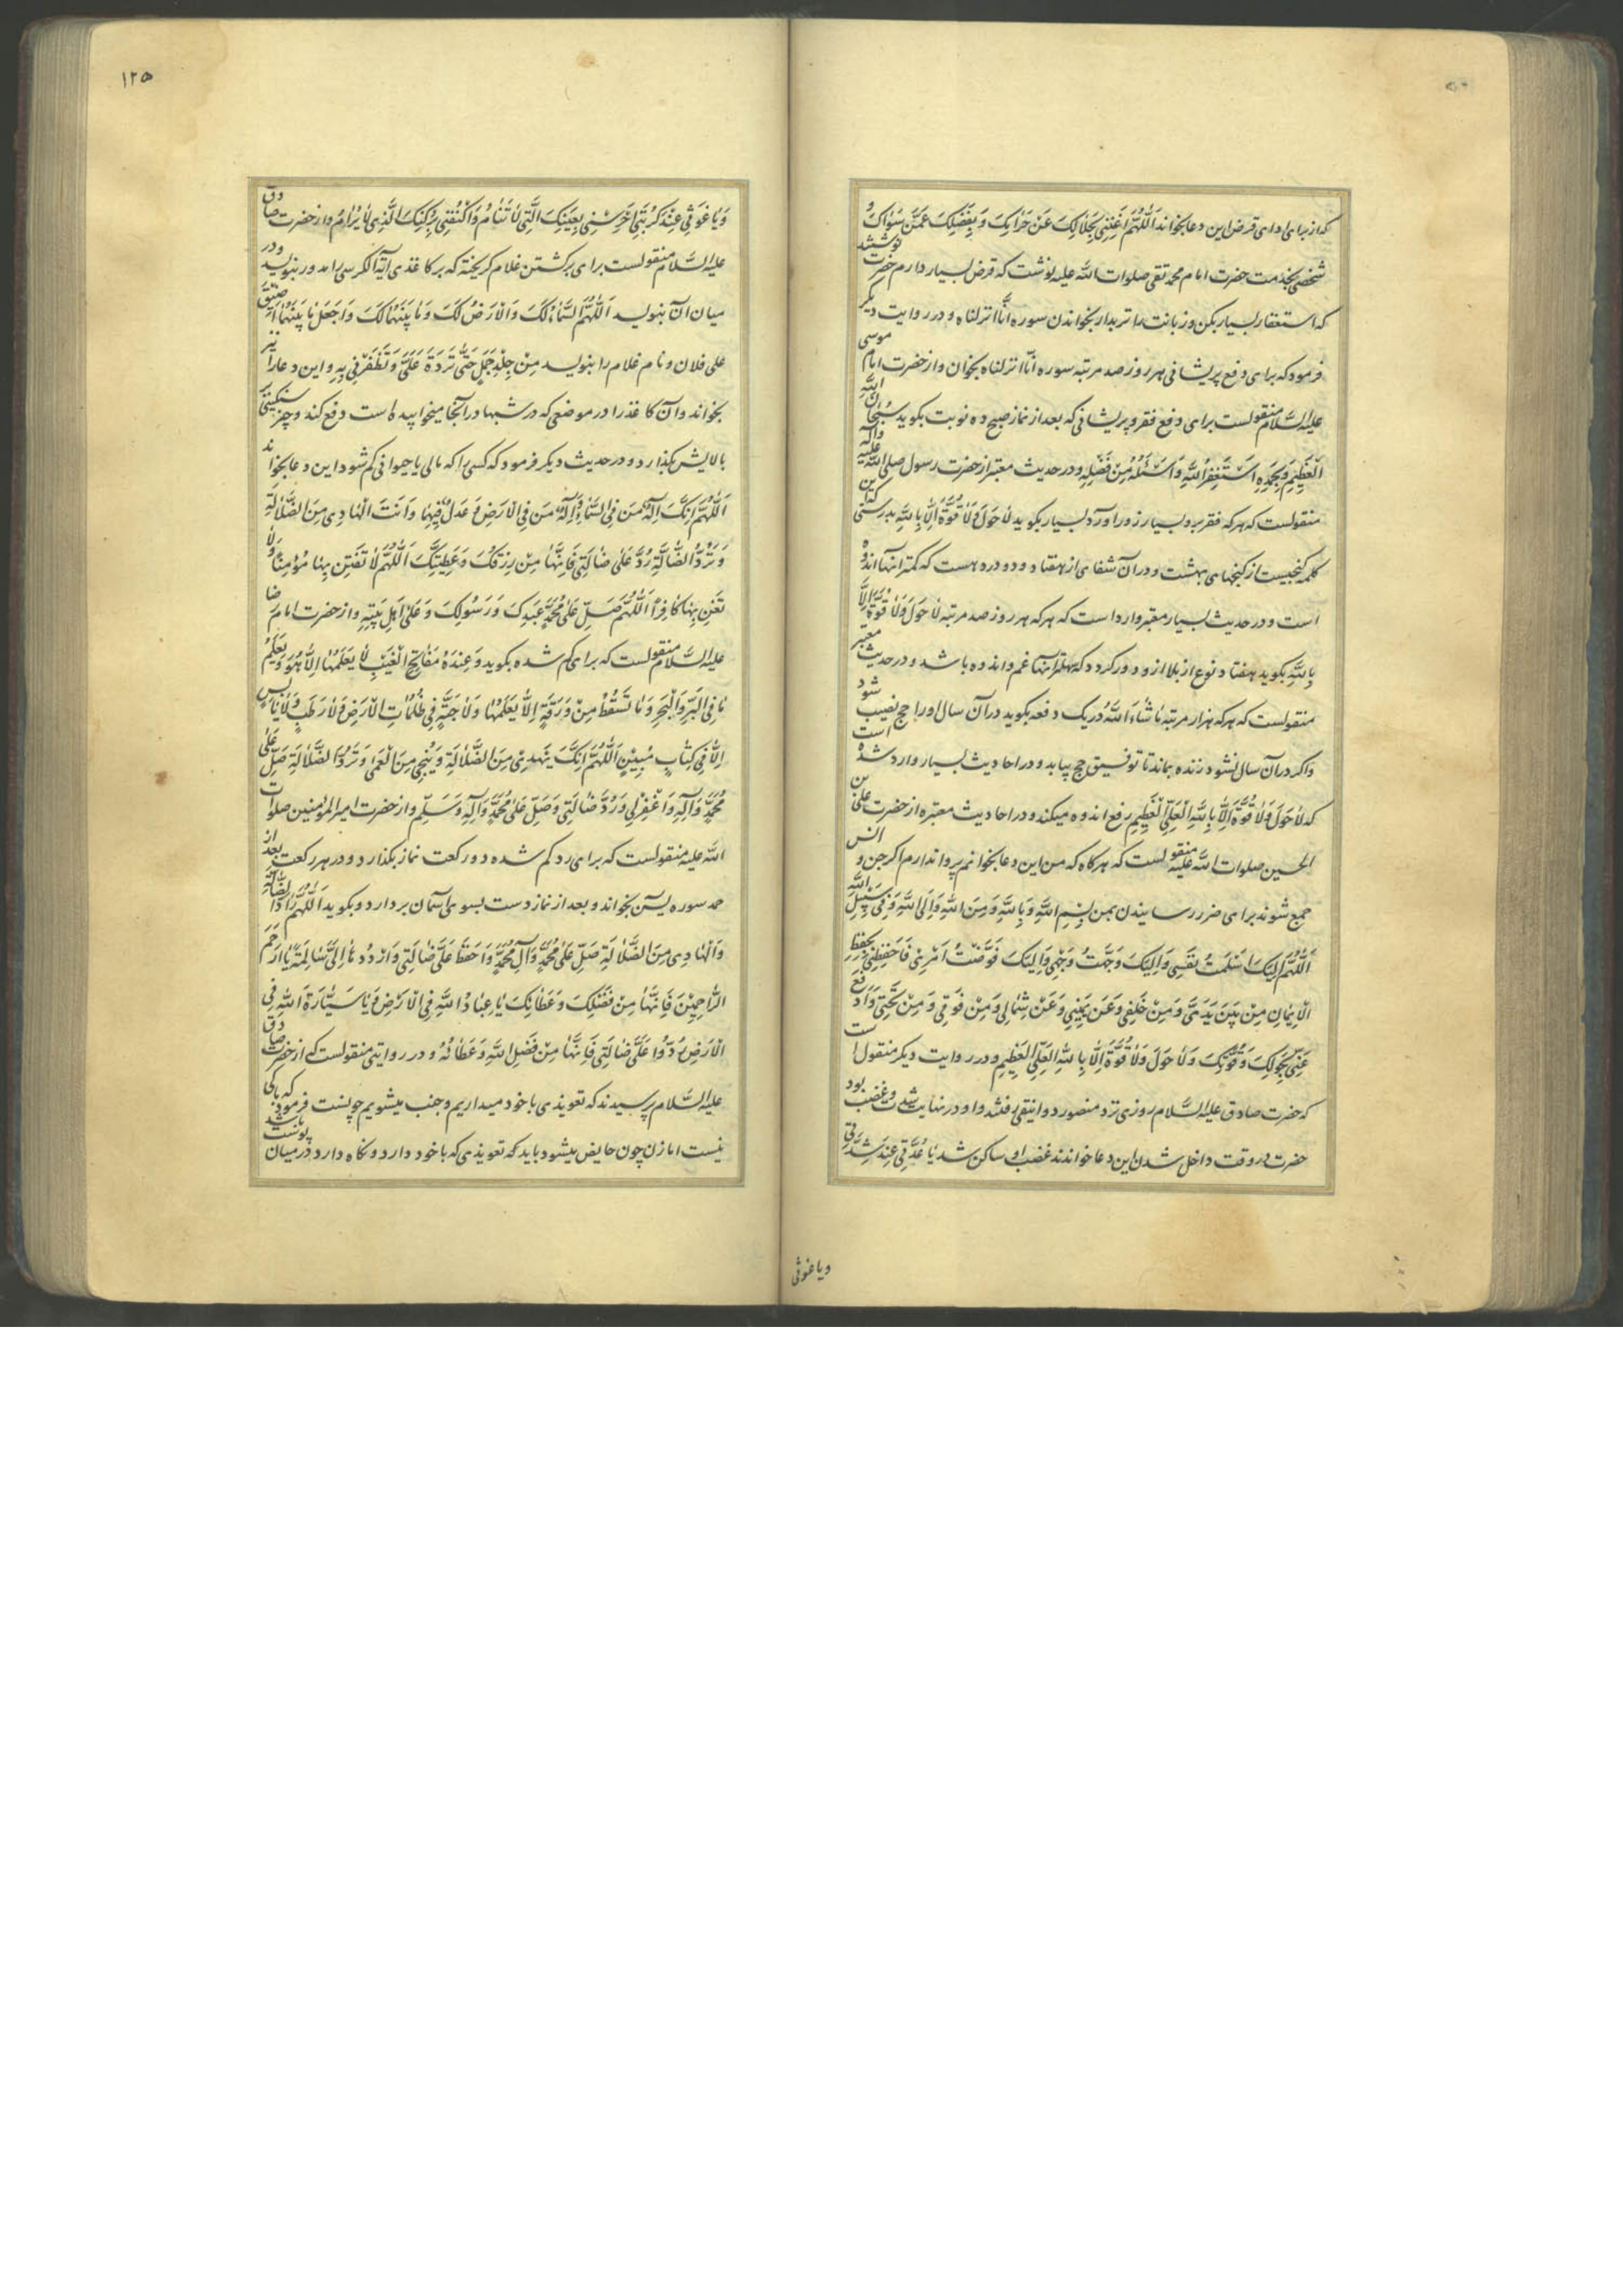 که از برای ادای قرض این دعا بخواند اَللّٰهُمَّ اَغْنِنِی بِحَلالِکَ عَنْ حَرامِکَ وَ بِفَضْلِکَ عَمَّنْ سِوَاکَ و
شخصی بخدمت حضرت امام محمد تقی صلوات اللّٰه علیه نوشت که قرض بسیار دارم حضرت نوشتند
که استغفار بسیار بکن و زبانت را تر بدار بخواندن سوره انّا انزلناه و در روایت دیگر
فرمود که برای دفع پریشانی هر روز صد مرتبه سوره انّا انزلناه بخوان و از حضرت امام موسی
علیه السّلام منقولست برای دفع فقر و پریشانی که بعد از نماز صبح ده نوبت بکوید سُبْحانَ اللّٰهِ
الْعَظِیمِ وَبِحَمْدِهِ اَسْتَغْفِرُ اللّٰهَ وَاَسْئَلُهُ مِنْ فَضْلِهِ و در حدیث معتبر از حضرت رسول صلی اللّٰه علیه وآله
منقولست که هر که فقر بر او بسیار زور آورد بسیار بکوید لاٰ حَوْلَ وَلاٰ قُوَّةَ اِلاّٰ بِاللّٰهِ بدرستی که این
کلمه کنجیست از کنجهای بهشت و در آن شفای از هفتاد و دو درد هست که کمتر آنها اندوه
است و در حدیث بسیار معتبر وارد است که هر که هر روز صد مرتبه لاٰ حَوْلَ وَلاٰ قُوَّةَ اِلاّٰ
بِاللّٰهِ بکوید هفتاد نوع از بلا از و دور کردد که سهلتر آنها غم و اندوه باشد و در حدیث معتبر
منقولست که هر که هزار مرتبه مٰا شٰاءَ اللّٰهُ در یک دفعه بکوید در آن سال او را حج نصیب شود
و اکر در آن سال نشود زنده بماند تا توفیق حج بیابد و در احادیث بسیار وارد شده است
که لاٰ حَوْلَ وَلاٰ قُوَّةَ اِلاّٰ بِاللّٰهِ الْعَلِیِّ الْعَظِیمِ رفع اندوه میکند و در احادیث معتبره از حضرت علی بن
الحسین صلوات اللّٰه علیه منقولست که هر کاه که من این دعا بخوانم پروا ندارم اکر جن و انس
جمع شوند برای ضرر رسانیدن بمن بِسْمِ اللّٰهِ وَ بِاللّٰهِ وَ مِنَ اللّٰهِ وَاِلَی اللّٰهِ وَ فِی سَبِیلِ اللّٰهِ
اَللّٰهُمَّ اِلَیْکَ اَسْلَمْتُ نَفْسِی وَ اِلَیْکَ وَجَّهْتُ وَجْهِی وَ اِلَیْکَ فَوَّضْتُ اَمْرِی فَاحْفَظْنِی بِحِفْظِ
الْاِیمٰانِ مِنْ بَیْنِ یَدَیَّ وَ مِنْ خَلْفِی وَ عَنْ یَمِینِی وَ عَنْ شِمٰالِی وَ مِنْ فَوْقِی وَ مِنْ تَحْتِی وَ ادْفَعْ
عَنِّی بِحَوْلِکَ وَ قُوَّتِکَ وَ لاٰ حَوْلَ وَلاٰ قُوَّةَ اِلاّٰ بِاللّٰهِ الْعَلِیِّ الْعَظِیمِ و در روایت دیکر منقول است
که حضرت صادق علیه السّلام روزی نزد منصور دوانیقی رفتند و او در نهایت شدت و غضب بود
حضرت در وقت داخل شدن این دعا خواندند غضب او ساکن شد یٰا عُدَّتِی عِنْدَ شِدَّتِی
و یا غوثی
۱۲۵
وَ یٰا غَوْثِی عِنْدَ کُرْبَتِی اُحْرُسْنِی بِعَیْنِکَ الَّتِی لاٰ تَنٰامُ وَ اکْنُفْنِی بِرُکْنِکَ الَّذِی لاٰ یُرٰامُ و از حضرت صادق
علیه السّلام منقولست برای برکشتن غلام کریخته که بر کاغذی آیة الکرسی را مدور بنویسد و در
میان آن بنویسد اَللّٰهُمَّ السَّمٰاءُ لَکَ وَ الْاَرْضُ لَکَ وَ مٰا بَیْنَهُمٰا لَکَ وَ اجْعَلْ مٰا بَیْنَهُمٰا اَضْیَقَ
علی فلان و نام غلام را بنویسد مِنْ جِلْدِ جَمَلٍ حَتّٰی تَرُدَّهُ عَلَیَّ وَ تُظْفِرَنِی بِهِ و این دعا را نیز
بخواند و آن کاغذ را در موضعی که در شبها در آنجا میخوابیده است دفع کند و چیز سنکینی
بالایش بکذارد و در حدیث دیکر فرمود که کسی را که مالی یا حیوانی کم شود این دعا بخواند
اَللّٰهُمَّ اِنَّکَ اِلٰهُ مَنْ فِی السَّمٰاءِ وَ اِلٰهُ مَنْ فِی الْاَرْضِ وَ عَدْلٌ فِیهِمٰا وَ اَنْتَ الْهٰادِی مِنَ الضَّلاٰلَةِ
وَ تَرُدُّ الضّٰالَّةَ رُدَّ عَلَیَّ ضٰالَّتِی فَاِنَّهٰا مِنْ رِزْقِکَ وَ عَطِیَّتِکَ اَللّٰهُمَّ لاٰ تَفْتِنْ بِهٰا مُؤْمِنًا وَ لاٰ
تُغْنِ بِهٰا کٰافِرًا اَللّٰهُمَّ صَلِّ عَلٰی مُحَمَّدٍ عَبْدِکَ وَ رَسُولِکَ وَ عَلٰی اَهْلِ بَیْتِهِ و از حضرت امام رضا
علیه السّلام منقولست که برای کم شده بکوید وَ عِنْدَهُ مَفٰاتِحُ الْغَیْبِ لاٰ یَعْلَمُهٰا اِلاّٰ هُوَ وَ یَعْلَمُ
مٰا فِی الْبَرِّ وَ الْبَحْرِ وَ مٰا تَسْقُطُ مِنْ وَرَقَةٍ اِلاّٰ یَعْلَمُهٰا وَ لاٰ حَبَّةٍ فِی ظُلُمٰاتِ الْاَرْضِ وَ لاٰ رَطْبٍ وَ لاٰ یٰابِسٍ
اِلاّٰ فِی کِتٰابٍ مُبِینٍ اَللّٰهُمَّ اِنَّکَ تَهْدِی مِنَ الضَّلاٰلَةِ وَ تُنْجِی مِنَ الْعَمٰی وَ تَرُدُّ الضَّلاٰلَةَ صَلِّ عَلٰی
مُحَمَّدٍ وَ آلِهِ وَ اغْفِرْ لِی وَ رُدَّ ضٰالَّتِی وَ صَلِّ عَلٰی مُحَمَّدٍ وَ آلِهِ وَ سَلِّمْ و از حضرت امیر المؤمنین صلوات
اللّٰه علیه منقولست که برای رد کم شده دو رکعت نماز بکذارد و در هر رکعت بعد از
حمد سوره یٰسٓ بخواند و بعد از نماز دست بسوی آسمان بردارد و بکوید اَللّٰهُمَّ رٰادَّ الضّٰالَّةِ
وَ الْهٰادِی مِنَ الضَّلاٰلَةِ صَلِّ عَلٰی مُحَمَّدٍ وَ آلِ مُحَمَّدٍ وَ احْفَظْ عَلَیَّ ضٰالَّتِی وَ ارْدُدْهٰا اِلَیَّ سٰالِمَةً یٰا اَرْحَمَ
الرّٰاحِمِینَ فَاِنَّهٰا مِنْ فَضْلِکَ وَ عَطٰائِکَ یٰا عِبٰادَ اللّٰهِ فِی الْاَرْضِ وَ یٰا سَیّٰارَةَ اللّٰهِ فِی
الْاَرْضِ رُدُّوا عَلَیَّ ضٰالَّتِی فَاِنَّهٰا مِنْ فَضْلِ اللّٰهِ وَ عَطٰائِهِ و در روایتی منقولست که از حضرت صادق
علیه السّلام پرسیدند که تعویذی با خود میداریم و جنب میشویم چونست فرمود که باکی
نیست اما زن چون حایض میشود باید که تعویذی که با خود دارد و نکاه دارد در میان پوست باشد